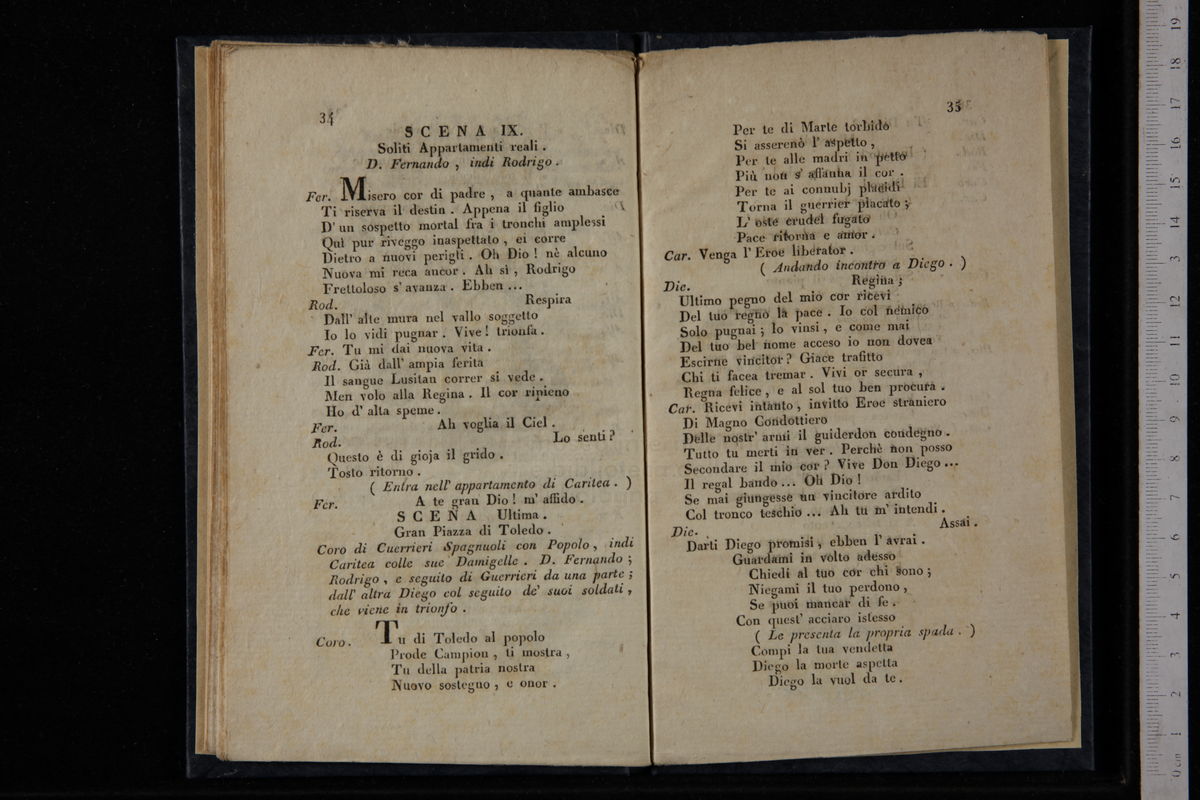 34
SCENA IX.
Soliti Appartamenti reali .
D. Fernando , indi Rodrigo .
Fer. Misero cor di padre , a quante ambasce
Ti riserva il destin . Appena il figlio
D' un sospetto mortal fra i tronchi amplessi
Quì pur riveggo inaspettato , ei corre
Dietro a nuovi perigli . Oh Dio ! nè alcuno
Nuova mi reca ancor . Ah sì , Rodrigo
Frettoloso s' avanza . Ebben ...
Rod. Respira
Dall' alte mura nel vallo soggetto
Io lo vidi pugnar . Vive ! trionfa .
Fer. Tu mi dai nuova vita .
Rod. Già dall' ampia ferita
Il sangue Lusitan correr si vede .
Men volo alla Regina . Il cor ripieno
Ho d' alta speme .
Fer. Ah voglia il Ciel .
Rod. Lo senti ?
Questo è di gioja il grido .
Tosto ritorno .
( Entra nell' appartamento di Caritea . )
Fer. A te gran Dio ! m' affido .
SCENA Ultima .
Gran Piazza di Toledo .
Coro di Cuerrieri Spagnuoli con Popolo , indi
Caritea colle sue Damigelle . D. Fernando ;
Rodrigo , e seguito di Guerrieri da una parte ;
dall' altra Diego col seguito de' suoi soldati ,
che viene in trionfo .
Coro. Tu di Toledo al popolo
Prode Campion , ti mostra ,
Tu della patria nostra
Nuovo sostegno , e onor .
35
Per te di Marte torbido
Si asserenò l' aspetto ,
Per te alle madri in petto
Più non s' affanna il cor .
Per te ai connubj placidi
Torna il guerrier placato ;
L' oste crudel fugato
Pace ritorna e amor .
Car. Venga l' Eroe liberator .
( Andando incontro a Diego . )
Die. Regina ;
Ultimo pegno del mio cor ricevi
Del tuo regno la pace . Io col nemico
Solo pugnai ; lo vinsi , e come mai
Del tuo bel nome acceso io non dovea
Escirne vincitor ? Giace trafitto
Chi ti facea tremar . Vivi or secura ,
Regna felice , e al sol tuo ben procura .
Car. Ricevi intanto , invitto Eroe straniero
Di Magno Condottiero
Delle nostr' armi il guiderdon condegno .
Tutto tu merti in ver . Perchè non posso
Secondare il mio cor ? Vive Don Diego ...
Il regal bando ... Oh Dio !
Se mai giungesse un vincitore ardito
Col tronco teschio ... Ah tu m' intendi .
Die. Assai .
Darti Diego promisi , ebben l' avrai .
Guardami in volto adesso
Chiedi al tuo cor chi sono ;
Niegami il tuo perdono ,
Se puoi mancar di fe .
Con quest' acciaro istesso
( Le presenta la propria spada . )
Compi la tua vendetta
Diego la morte aspetta
Diego la vuol da te .
0 cm 1 2 3 4 5 6 7 8 9 10 11 12 13 14 15 16 17 18 19